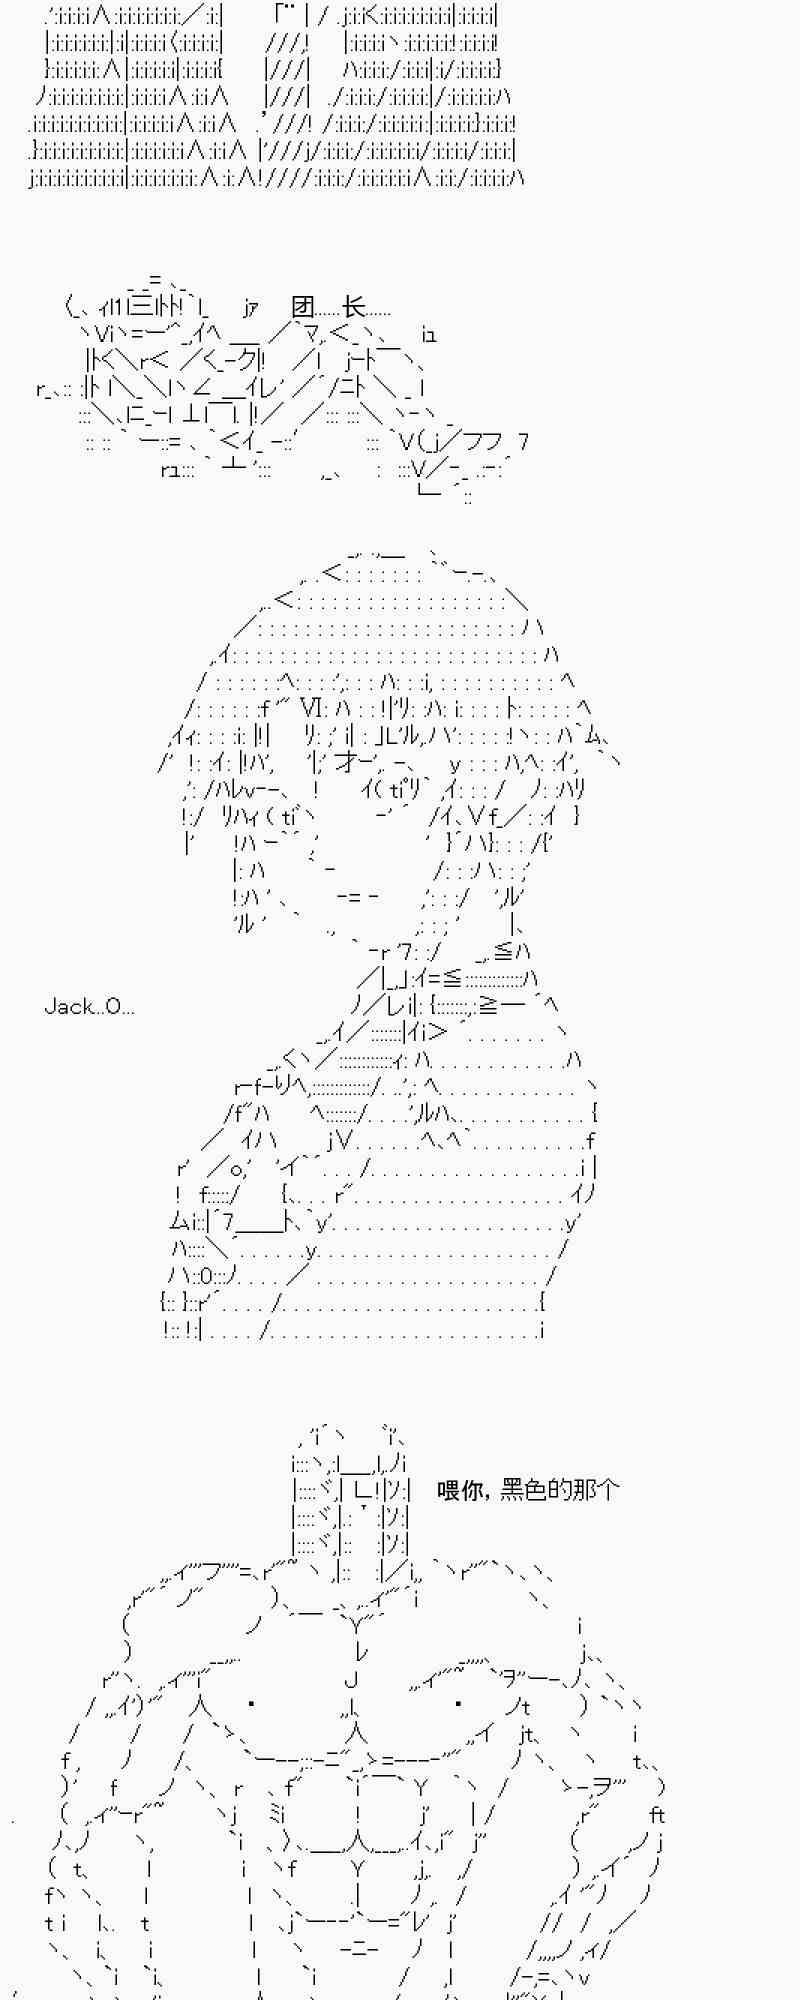 团……长……
Jack...O...
喂你，黑色的那个